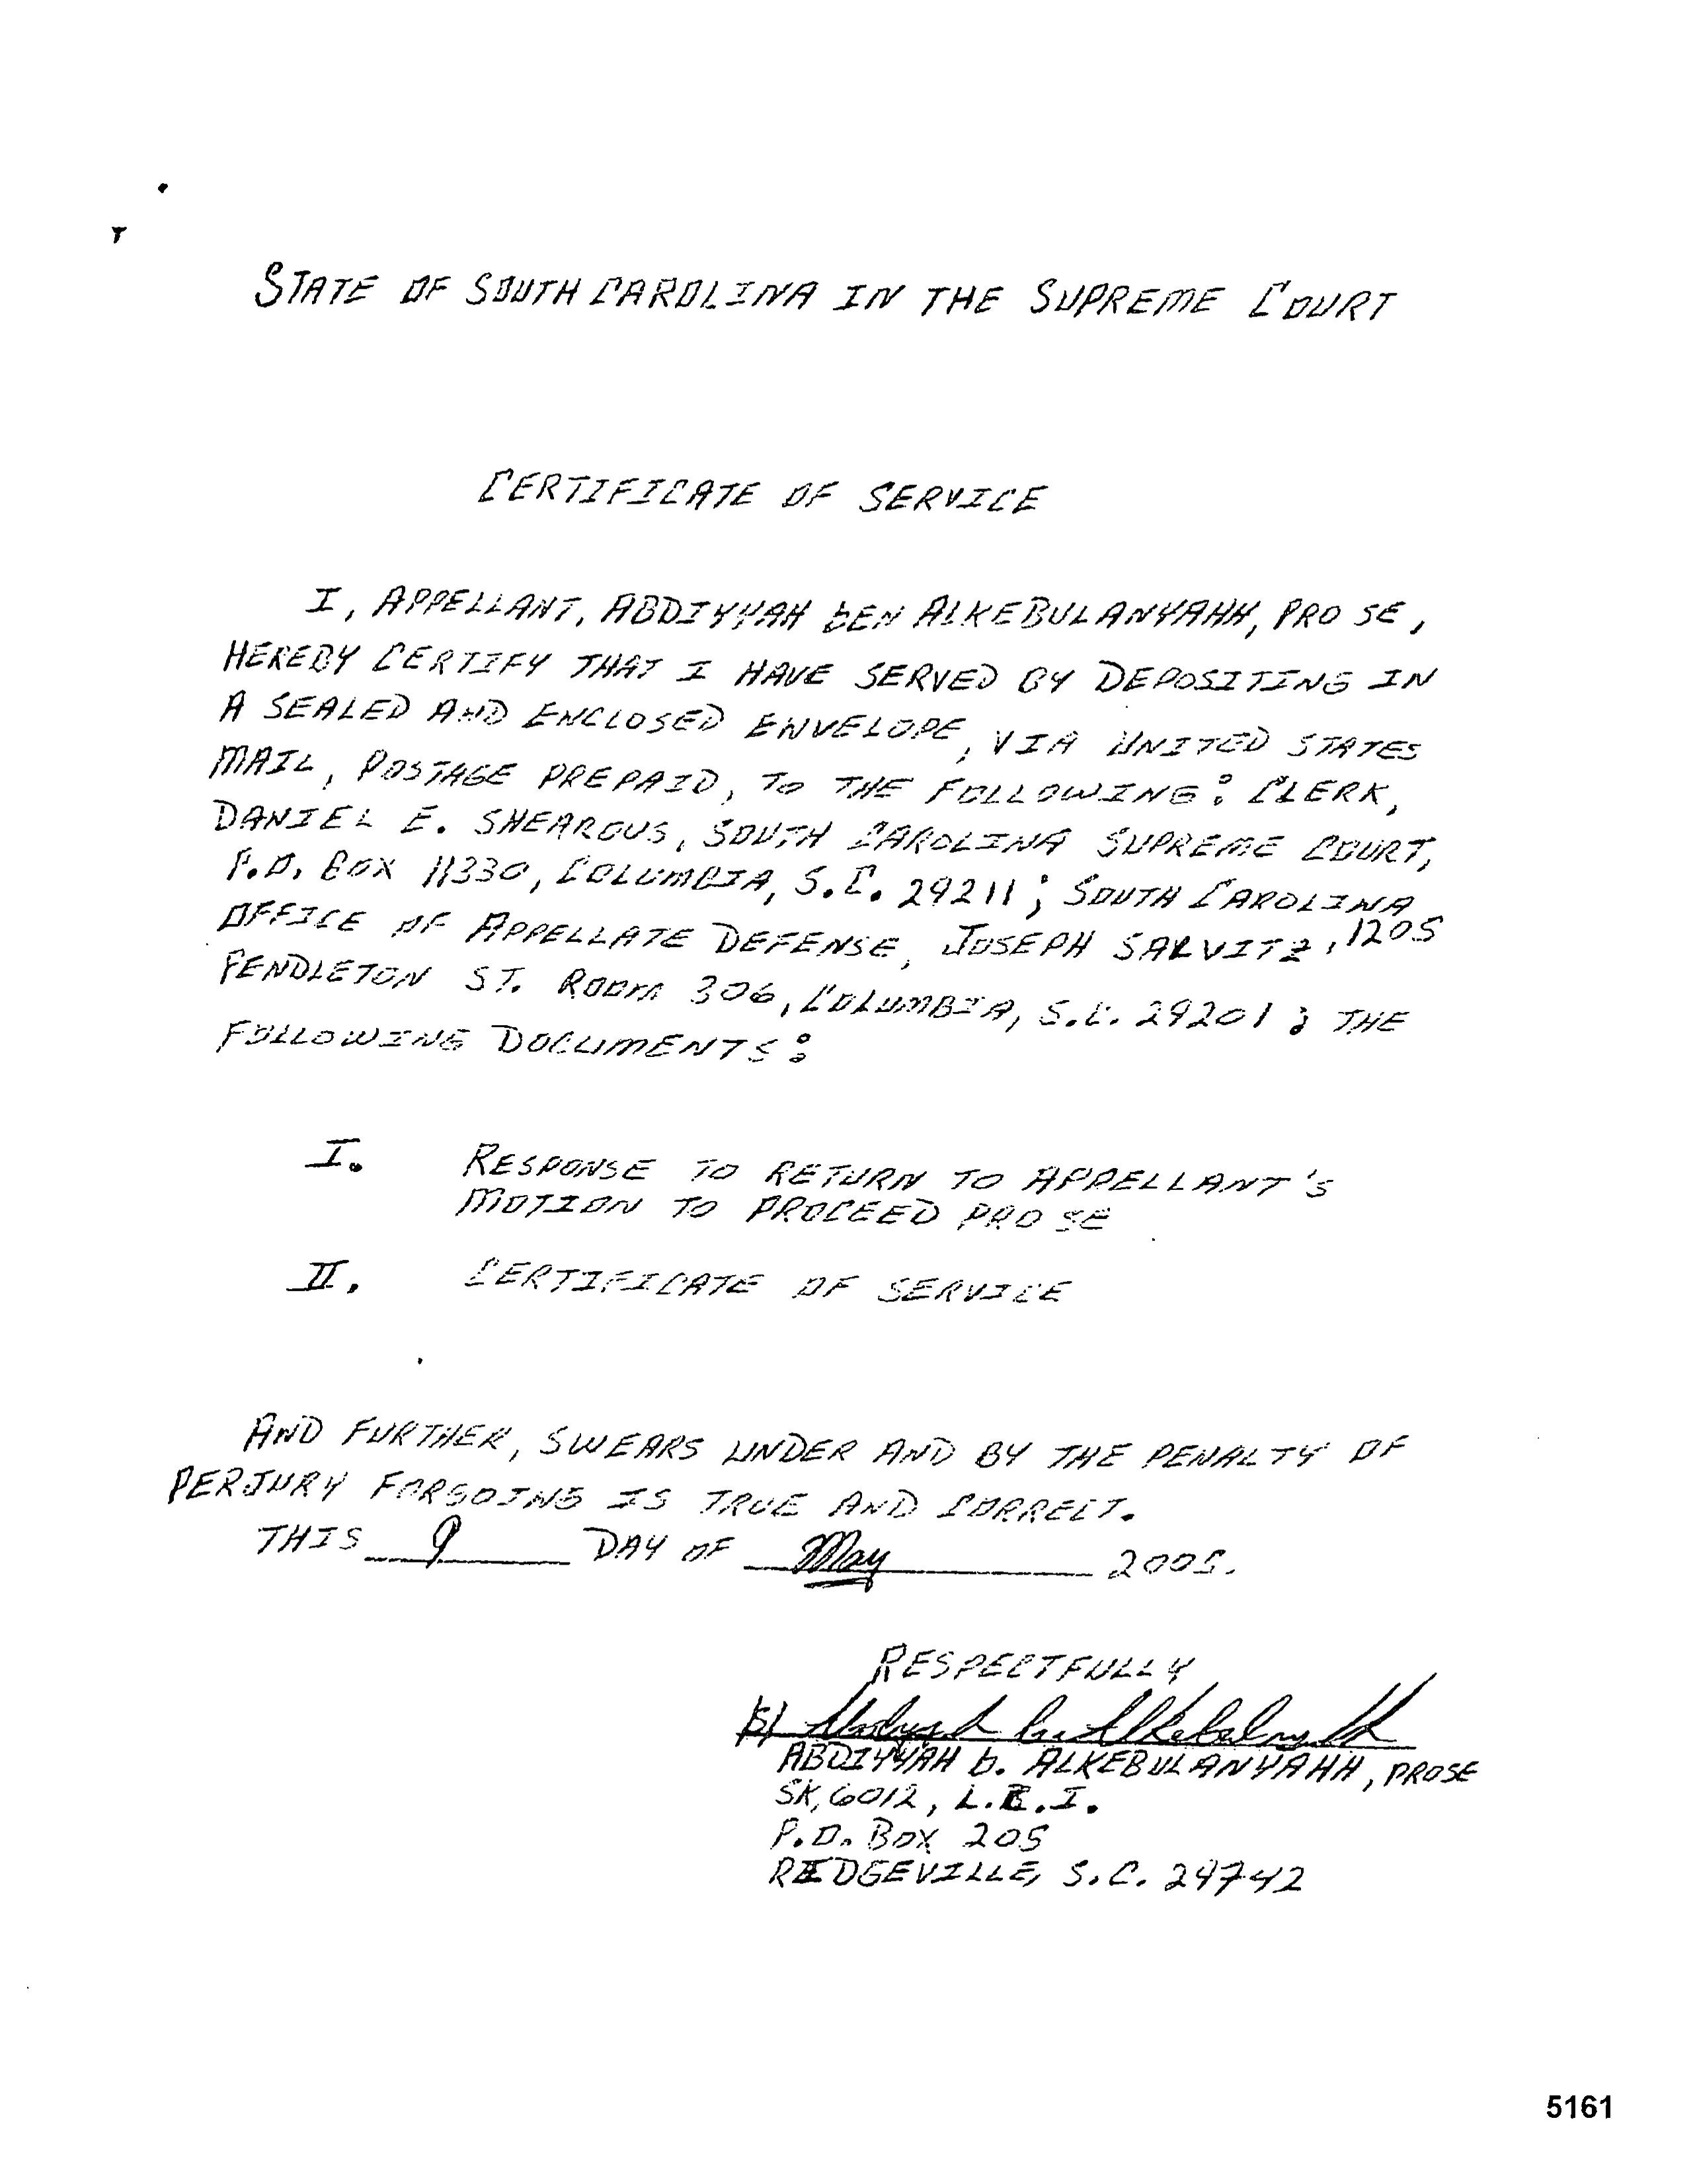 STATE OF SOUTH CAROLINA IN THE SUPREME COURT
CERTIFICATE OF SERVICE
I, APPELLANT, ABDIYYAH bEN ALKEBULANYAHH, PRO SE,
HEREBY CERTIFY THAT I HAVE SERVED BY DEPOSITING IN
A SEALED AND ENCLOSED ENVELOPE, VIA UNITED STATES
MAIL, POSTAGE PREPAID, TO THE FOLLOWING: CLERK,
DANIEL E. SHEAROUS, SOUTH CAROLINA SUPREME COURT,
P.O. BOX 11330, COLUMBIA, S.C. 29211; SOUTH CAROLINA
OFFICE OF APPELLATE DEFENSE, JOSEPH SAVITZ, 1205
PENDLETON ST. ROOM 306, COLUMBIA, S.C. 29201; THE
FOLLOWING DOCUMENTS:
I. RESPONSE TO RETURN TO APPELLANT'S
MOTION TO PROCEED PRO SE
II. CERTIFICATE OF SERVICE
AND FURTHER, SWEARS UNDER AND BY THE PENALTY OF
PERJURY FORGOING IS TRUE AND CORRECT.
THIS 9 DAY OF May 2005.
RESPECTFULLY
(s)
ABDIYYAH b. ALKEBULANYAHH, PROSE
SK, 6012, L.C.I.
P.O. BOX 205
RIDGEVILLE, S.C. 29742
5161